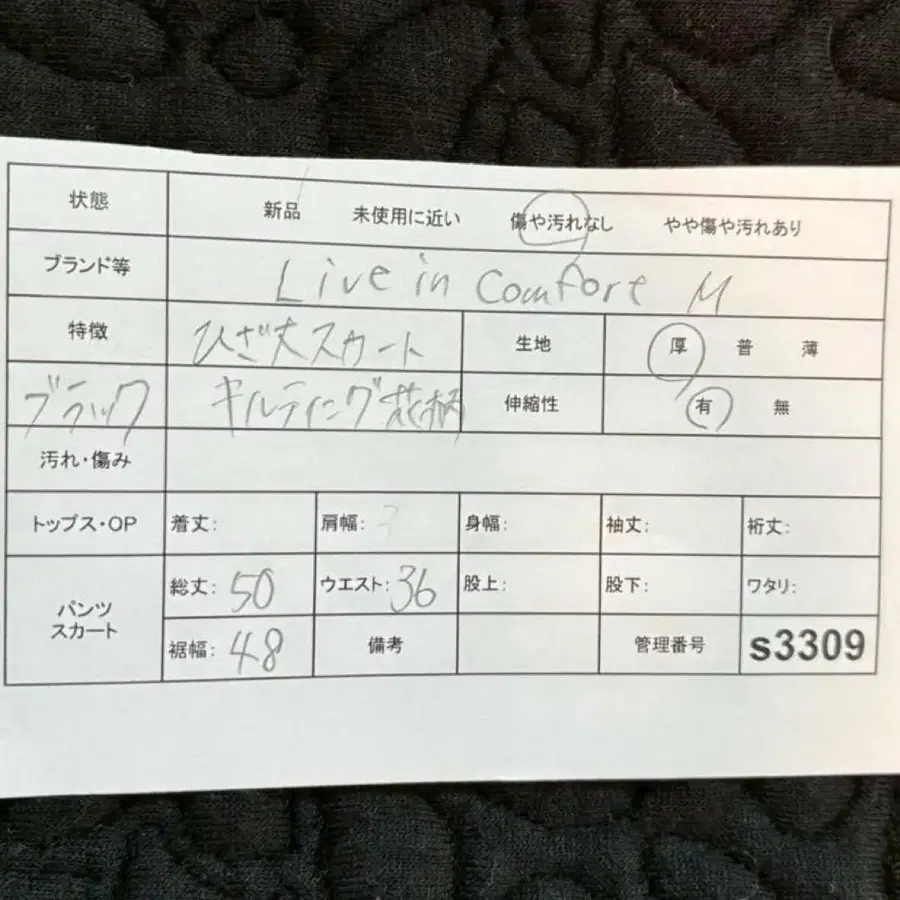 状態 新品 未使用に近い 傷や汚れなし やや傷や汚れあり
ブランド等 Live in comfort M
特徴 ひざ丈スカート 生地 厚 普 薄
ブラック キルティング花柄 伸縮性 有 無
汚れ・傷み
トップス・OP 着丈: 肩幅: 身幅: 袖丈: 裄丈:
パンツ スカート 総丈: 50 ウエスト: 36 股上: 股下: ワタリ:
裾幅: 48 備考 管理番号 s3309